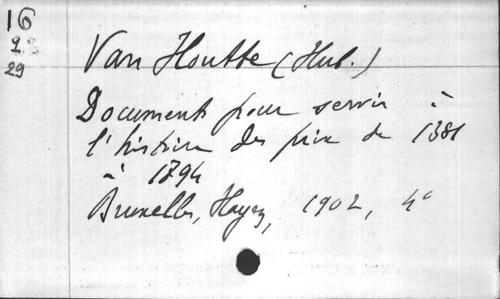 16
29
Van Houtte (Hub.)
Documents pour servir à
l'histoire des prix de 1381
à 1794
Bruxelles, Hayez, 1902, 4°